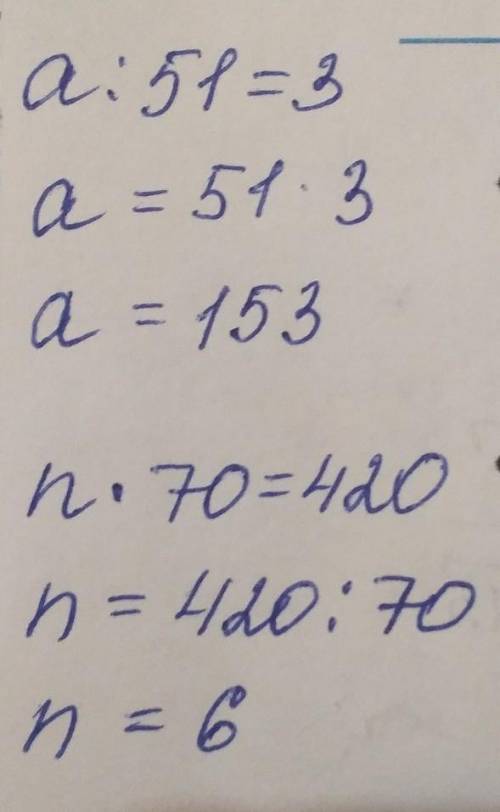 a : 51 = 3
a = 51 · 3
a = 153
n · 70 = 420
n = 420 : 70
n = 6